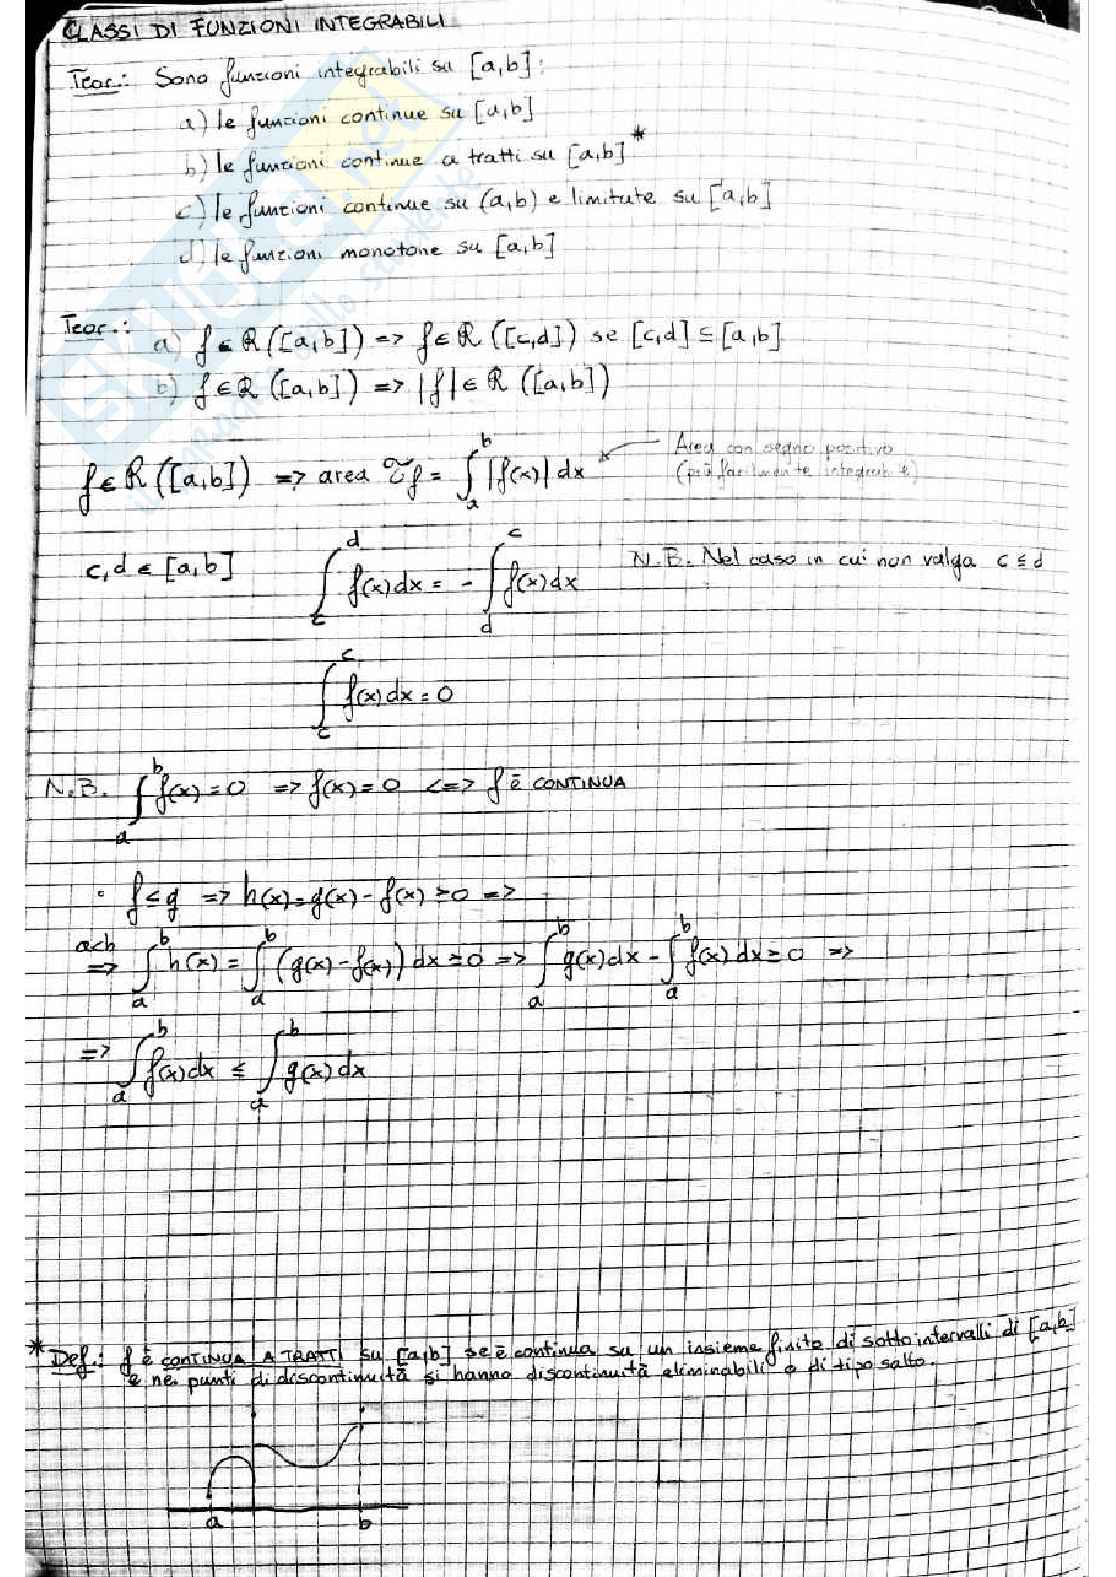 CLASSI DI FUNZIONI INTEGRABILI
Teor.: Sono funzioni integrabili su [a,b]:
a) le funzioni continue su [a,b]
b) le funzioni continue a tratti su [a,b] *
c) le funzioni continue su (a,b) e limitate su [a,b]
d) le funzioni monotone su [a,b]
Teor.:
a) f ∈ R([a,b]) => f ∈ R([c,d]) se [c,d] ⊆ [a,b]
b) f ∈ R([a,b]) => |f| ∈ R([a,b])
f ∈ R([a,b]) => area τf = ∫_a^b |f(x)| dx
Area con segno positivo
(più facilmente integrabile)
c,d ∈ [a,b] ∫_c^d f(x)dx = - ∫_d^c f(x)dx N.B. Nel caso in cui non valga c ≤ d
∫_c^c f(x)dx = 0
N.B. ∫_a^b f(x) = 0 => f(x) = 0 <=> f è CONTINUA
• f ≤ g => h(x) = g(x) - f(x) ≥ 0 =>
a<b
=> ∫_a^b h(x) = ∫_a^b (g(x) - f(x)) dx ≥ 0 => ∫_a^b g(x)dx - ∫_a^b f(x)dx ≥ 0 =>
=> ∫_a^b f(x)dx ≤ ∫_a^b g(x)dx
* Def.: f è CONTINUA A TRATTI su [a,b] se è continua su un insieme finito di sottointervalli di [a,b]
e nei punti di discontinuità si hanno discontinuità eliminabili o di tipo salto.
a b